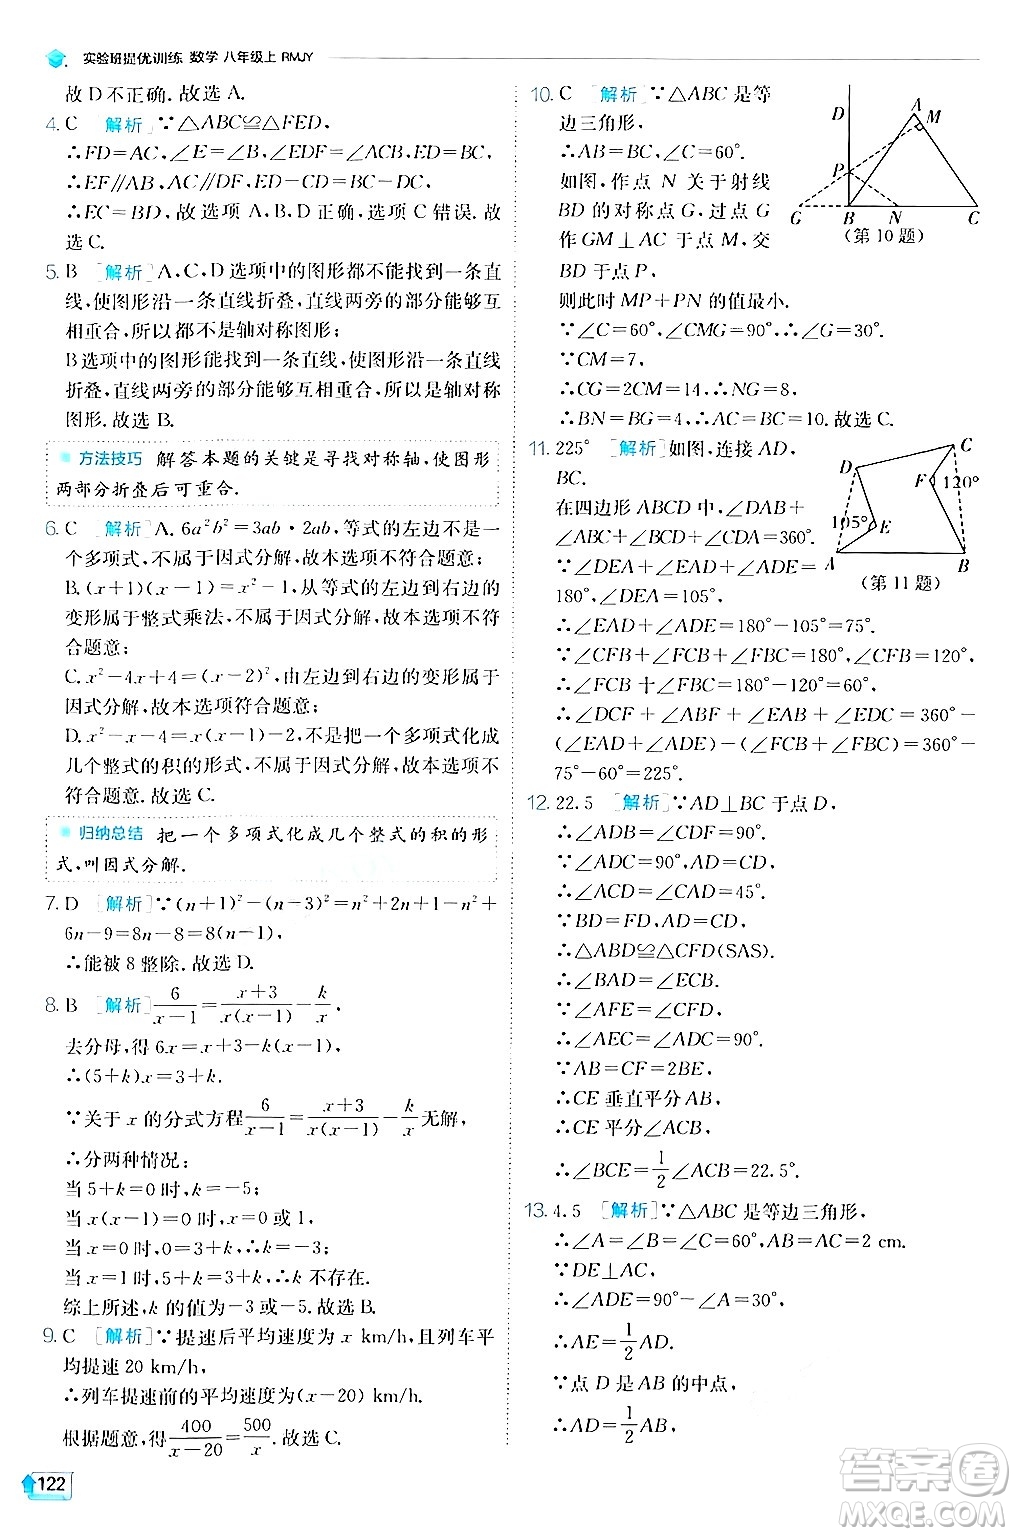 实验班提优训练 数学 八年级上 RMJY
故 D 不正确. 故选 A.
4. C [解析]∵△ABC≌△FED,
∴FD=AC,∠E=∠B,∠EDF=∠BCA,ED=BC.
∴EF∥AB,AC∥DF,ED-CD=BC-DC.
∴EC=BD,故选项 A,B,D 正确,选项 C 错误. 故
选 C.
5. B [解析]A,C,D 选项中的图形都不能找到一条直
线,使图形沿一条直线折叠,直线两旁的部分能够互
相重合,所以都不是轴对称图形;
B 选项中的图形能找到一条直线,使图形沿一条直线
折叠,直线两旁的部分能够互相重合,所以是轴对称
图形. 故选 B.
方法技巧 解答本题的关键是寻找对称轴,使图形
两部分折叠后可重合.
6. C [解析]A. 6a²b²=3ab·2ab,等式的左边不是一
个多项式,不属于因式分解,故本选项不符合题意;
B. (x+1)(x-1)=x²-1,从等式的左边到右边的
变形属于整式乘法,不属于因式分解,故本选项不符
合题意;
C. x²-4x+4=(x-2)²,由左边到右边的变形属于
因式分解,故本选项符合题意;
D. x²-x-4=x(x-1)-2,不是把一个多项式化成
几个整式的积的形式,不属于因式分解,故本选项不
符合题意. 故选 C.
归纳总结 把一个多项式化成几个整式的积的形
式,叫因式分解.
7. D [解析]∵(n+1)²-(n-3)²=n²+2n+1-n²+
6n-9=8n-8=8(n-1),
∴能被 8 整除. 故选 D.
8. B [解析]6/(x-1)=(x+3)/(x(x-1))-k/x,
去分母,得 6x=x+3-k(x-1),
∴(5+k)x=3+k,
∵关于 x 的分式方程6/(x-1)=(x+3)/(x(x-1))-k/x无解,
∴分两种情况:
当 5+k=0 时,k=-5;
当 x(x-1)=0 时,x=0 或 1,
当 x=0 时,3+k=0,k=-3;
当 x=1 时,5+k=3+k,∴k 不存在.
综上所述,k 的值为-3 或-5. 故选 B.
9. C [解析]∵提速后平均速度为 x km/h,且列车平
均提速 20 km/h,
∴列车提速前的平均速度为(x-20) km/h.
根据题意,得400/(x-20)=500/x. 故选 C.
122
10. C [解析]∵△ABC 是等
边三角形,
∴AB=BC,∠C=60°.
如图,作点 N 关于射线
BD 的对称点 G,过点 G
作 GM⊥AC 于点 M,交
BD 于点 P,
D
A
M
P
G
B
N
C
(第 10 题)
则此时 MP+PN 的值最小.
∵∠C=60°,∠CMG=90°,∴∠G=30°.
∵CM=7,
∴CG=2CM=14,∴NG=8,
∴BN=BG=4,∴AC=BC=10. 故选 C.
11. 225° [解析]如图,连接 AD,
BC.
在四边形 ABCD 中,∠DAB+
∠ABC+∠BCD+∠CDA=360°.
D
C
F
120°
105°
E
A
B
(第 11 题)
∵∠DEA+∠EAD+∠ADE=
180°,∠DEA=105°,
∴∠EAD+∠ADE=180°-105°=75°.
∵∠CFB+∠FCB+∠FBC=180°,∠CFB=120°,
∴∠FCB+∠FBC=180°-120°=60°,
∴∠DCF+∠ABF+∠EAB+∠EDC=360°-
(∠EAD+∠ADE)-(∠FCB+∠FBC)=360°-
75°-60°=225°.
12. 22.5 [解析]∵AD⊥BC 于点 D,
∴∠ADB=∠CDF=90°.
∵∠ADC=90°,
∴∠ACD=∠CAD=45°.
∵BD=FD,AD=CD,
∴△ABD≌△CFD(SAS).
∴∠BAD=∠ECB.
∵∠AFE=∠CFD,
∴∠AEC=∠ADC=90°.
∵AB=CF=2BE,
∴CE 垂直平分 AB,
∴CE 平分∠ACB,
∴∠BCE=1/2∠ACB=22.5°.
13. 4.5 [解析]∵△ABC 是等边三角形,
∴∠A=∠B=∠C=60°,AB=AC=2 cm.
∵DE⊥AC,
∴∠ADE=90°-∠A=30°,
∴AE=1/2AD.
∵点 D 是 AB 的中点,
∴AD=1/2AB,
答案圈
MXQE.COM